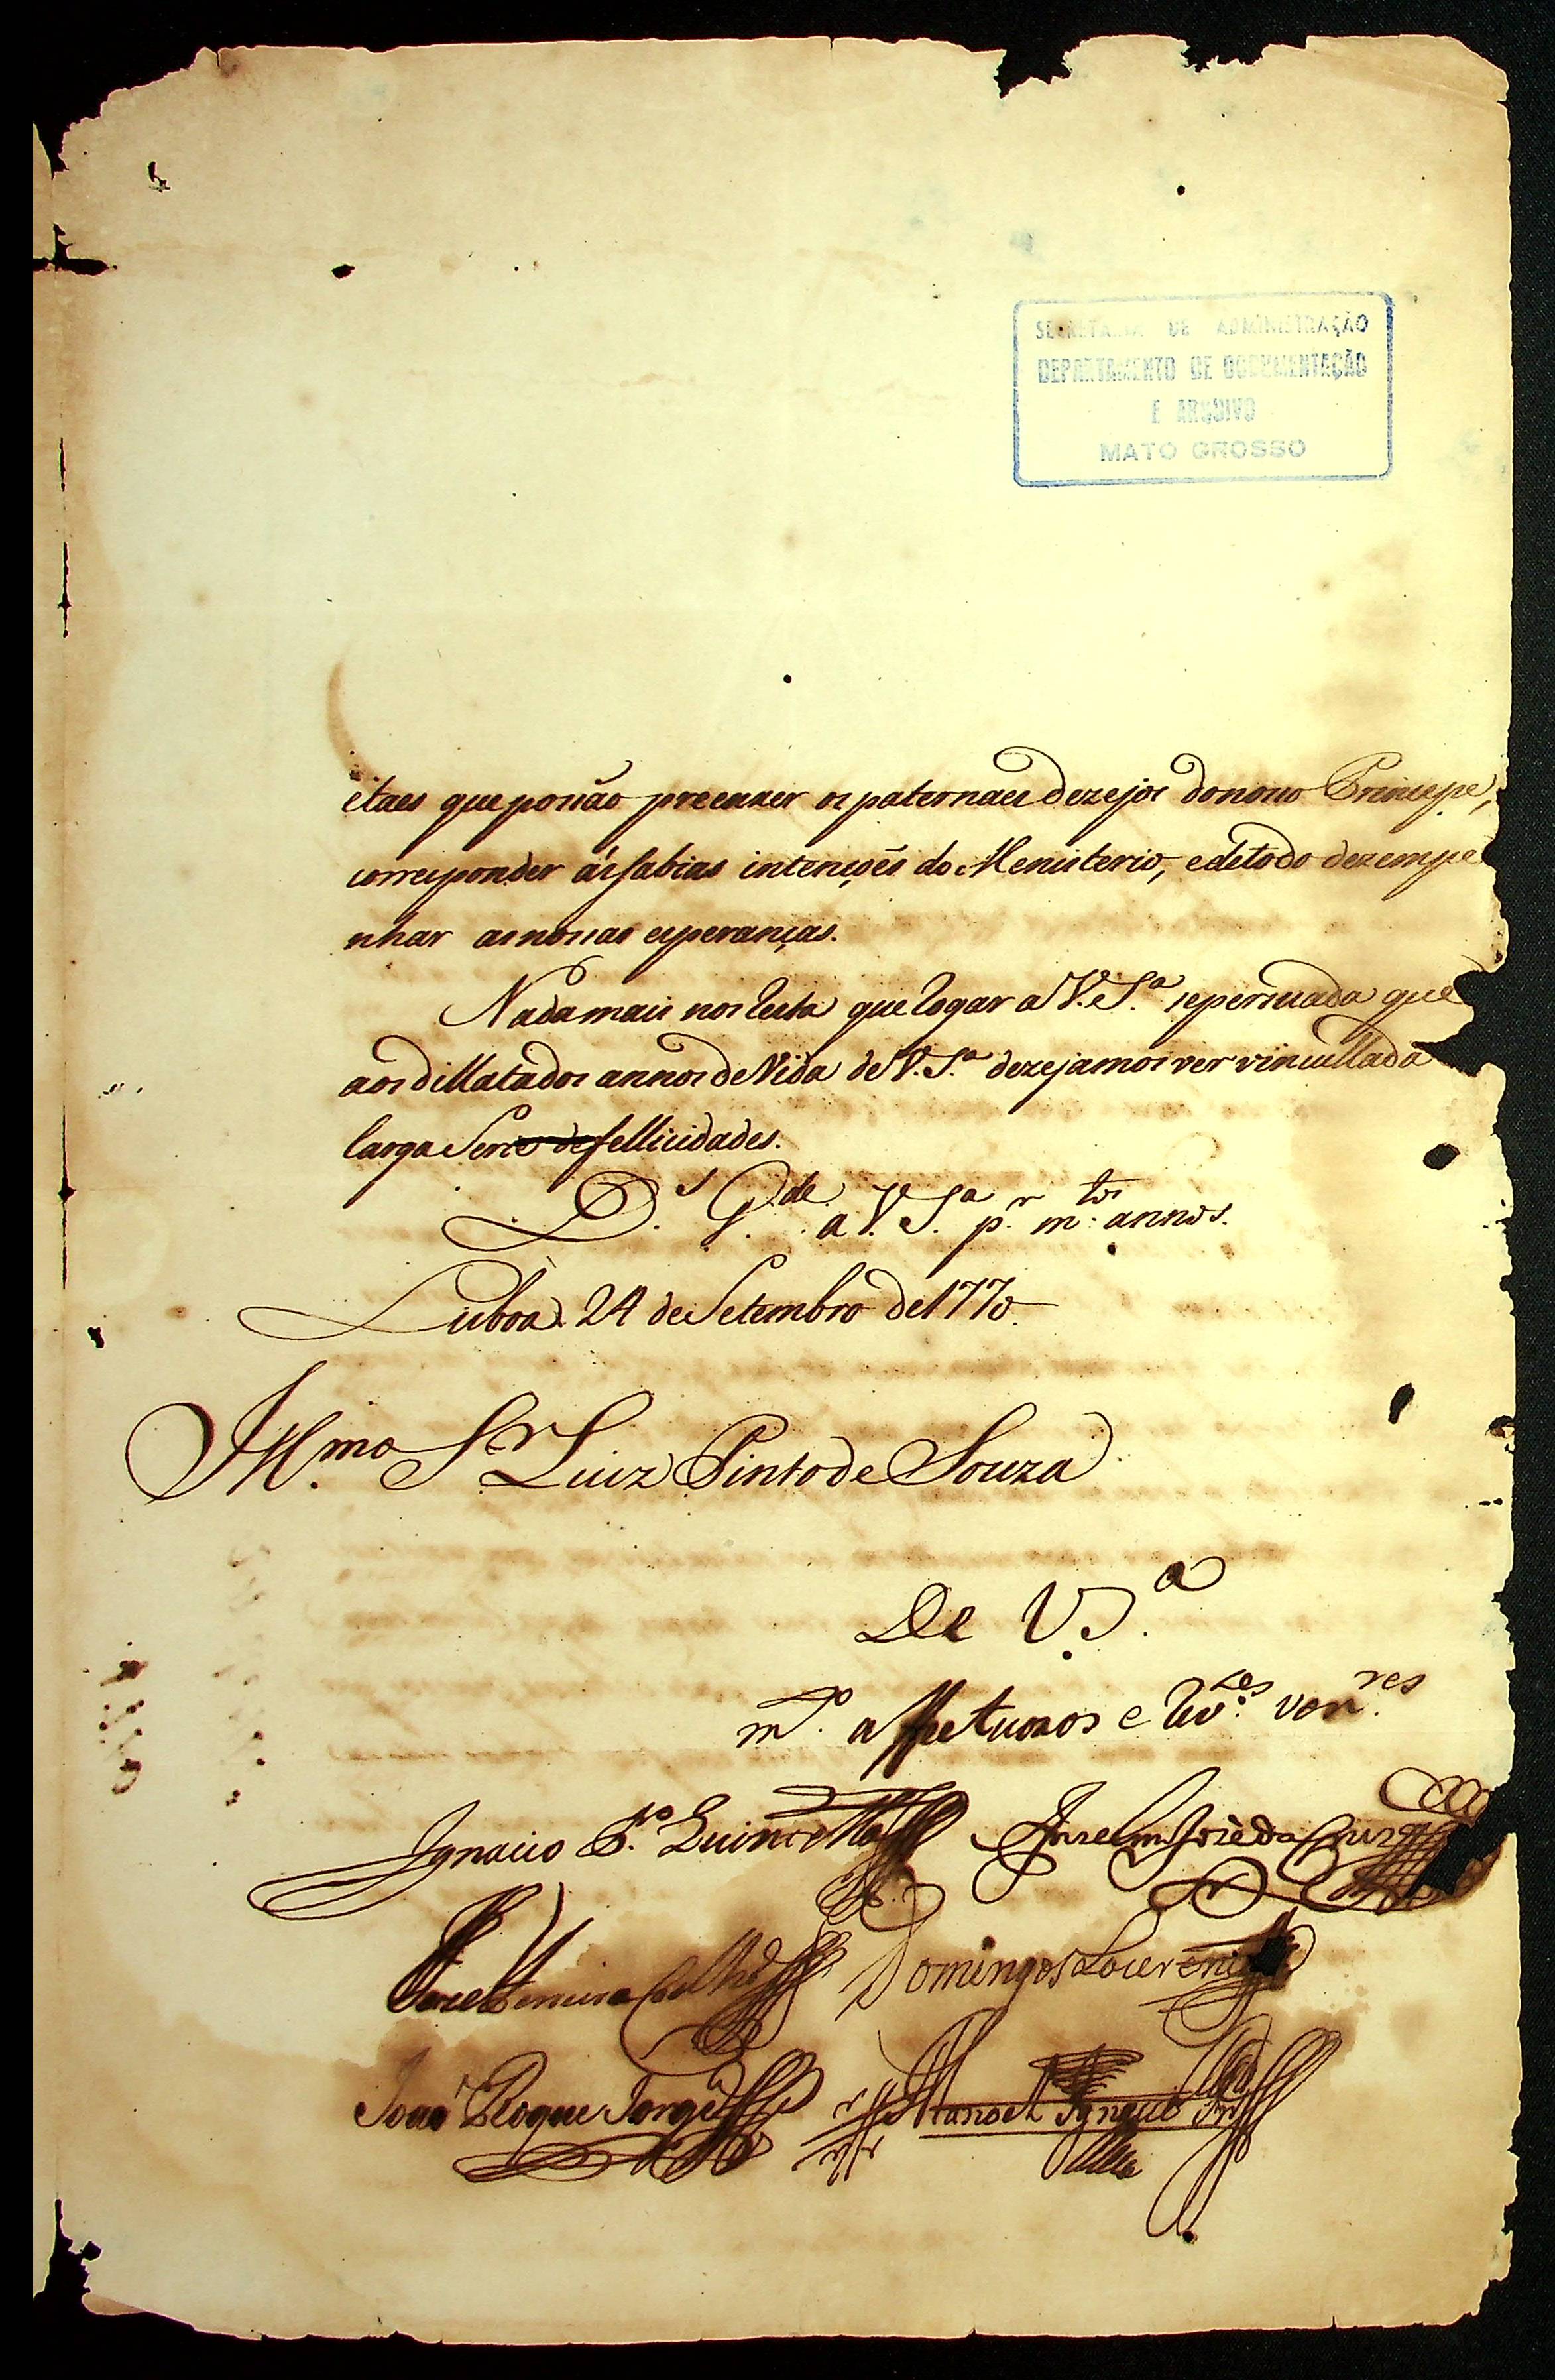 SECRETARIA DE ADMINISTRAÇÃO
DEPARTAMENTO DE DOCUMENTAÇÃO
E ARQUIVO
MATO GROSSO
etaes que possão preencxer os paternaes dezejos do nosso Principe,
corresponder ás sabias intençoẽs do Menisterio, e de todo dezempe
nhar as nossas esperanças.
Nada mais nos resta que rogar a V. S.ª se persuada que
aos dillatados annos de Vida de V. S.ª dezejamos ver vincullada
larga Serie de fellicidades.
D.s G.de a V. S.ª p.r m.tos annos.
Lisboa 24 de Setembro de 1770.
Ill.mo S.r Luiz Pinto de Souza
De V. S.ª
m.to affectuosos e
Ignacio P.ro Quintella Anselmo Jozé da Cruz
Joze Ferreira Coelho Domingos Lourenço
João Roque Jorge Manoel Ignacio